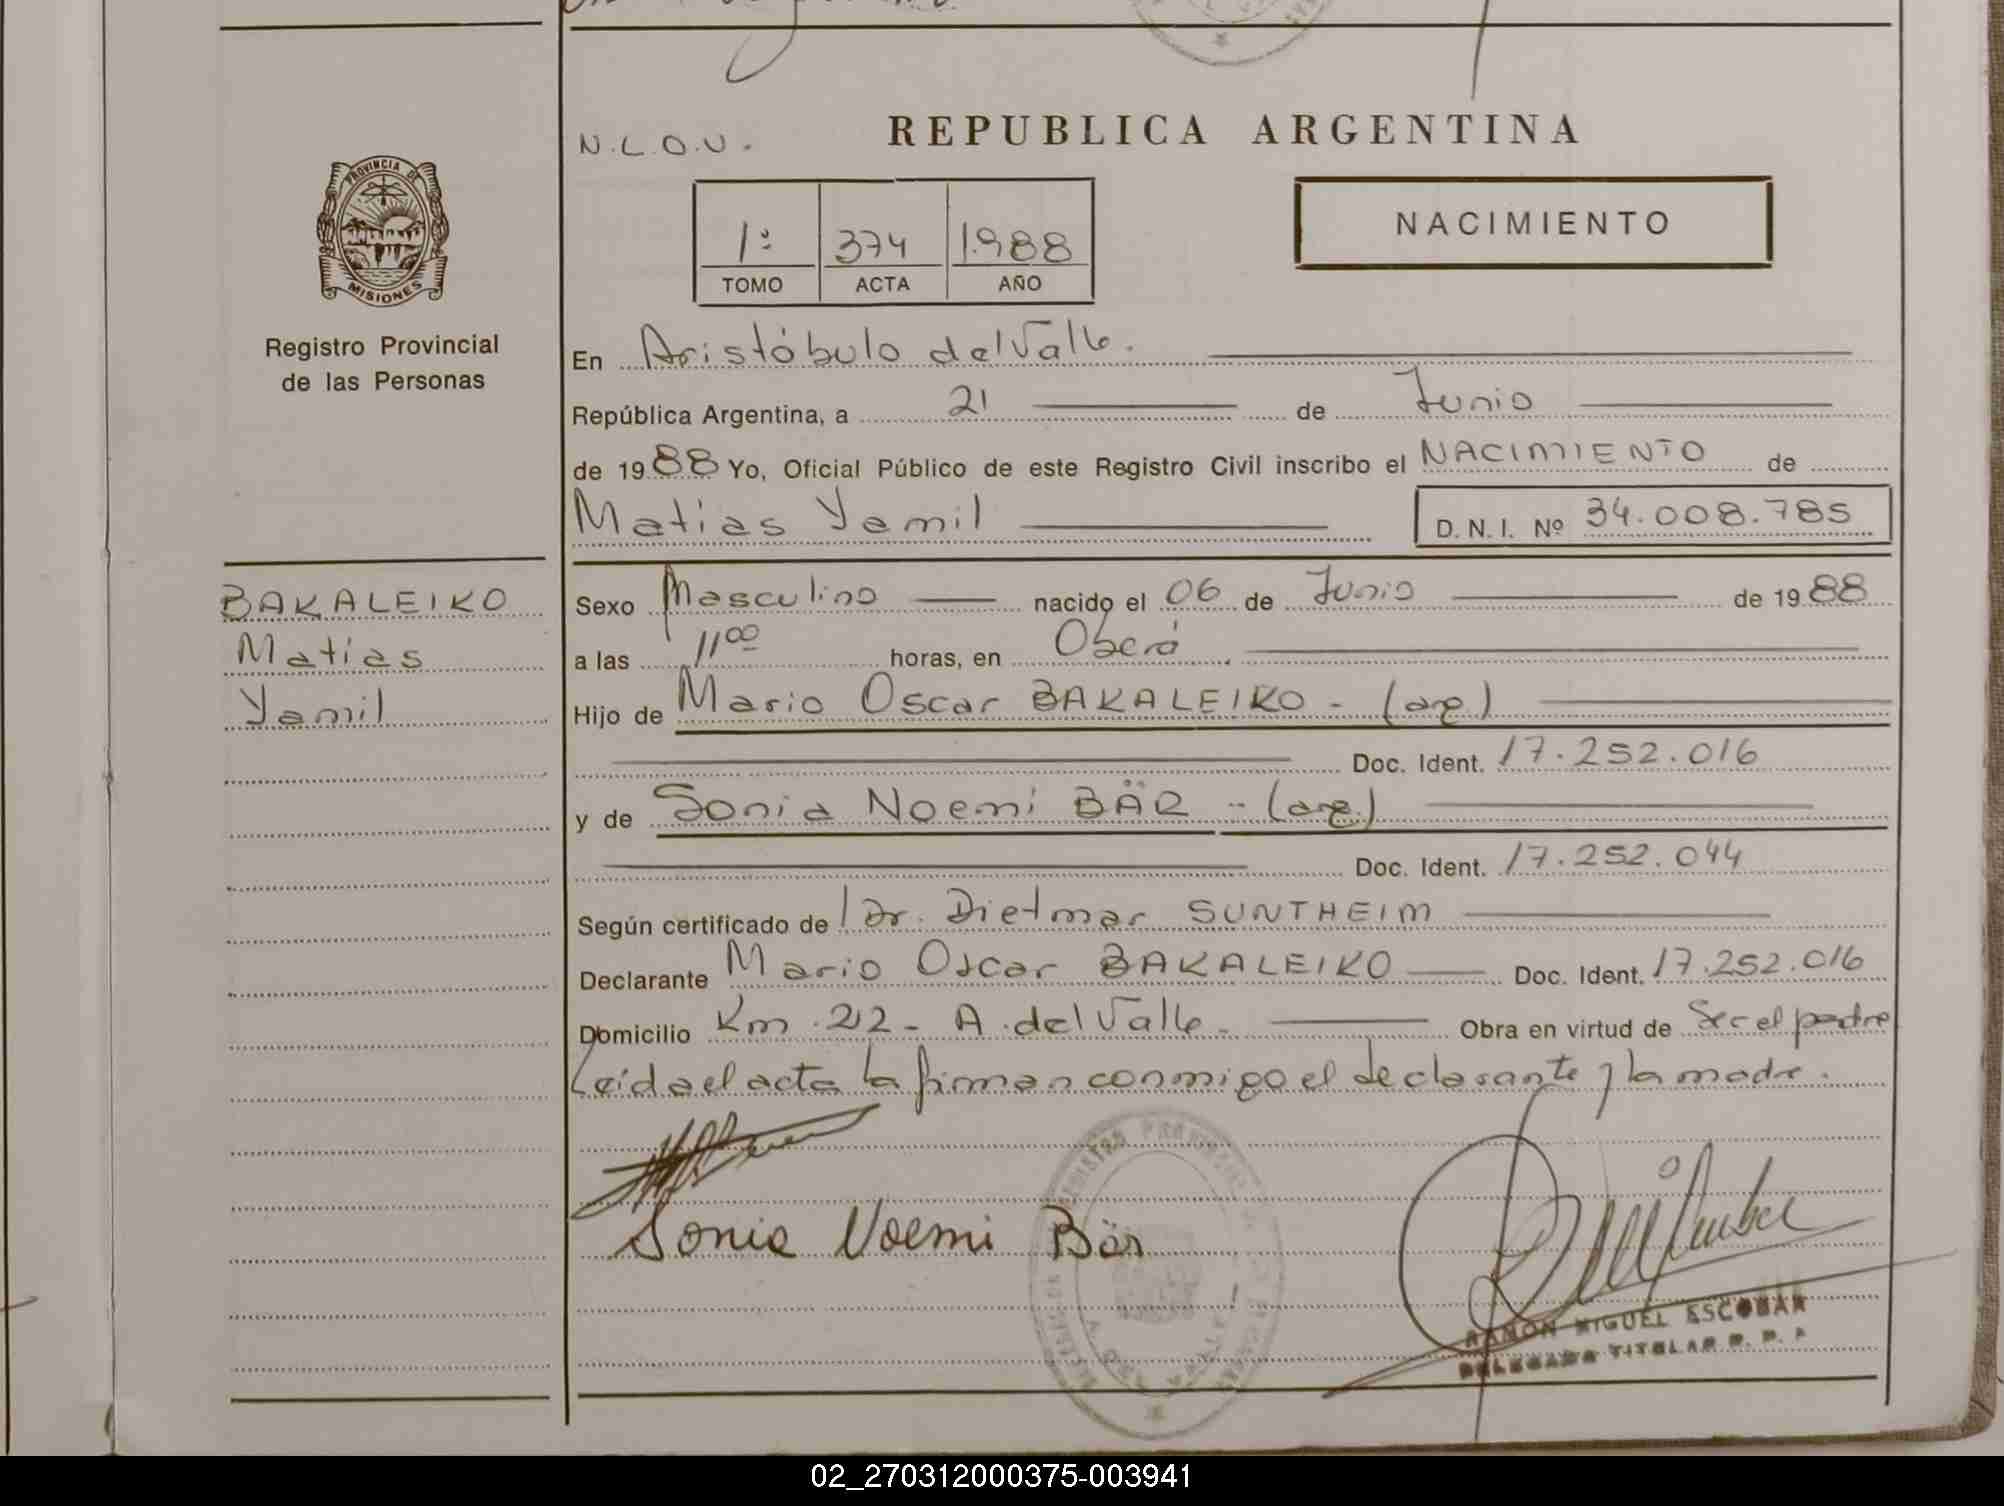 N.L.O.U.
REPUBLICA ARGENTINA
PROVINCIA DE
MISIONES
Registro Provincial
de las Personas
1º 374 1988
TOMO ACTA AÑO
NACIMIENTO
En Aristóbulo del Valle.
República Argentina, a 21 de Junio
de 1988 Yo, Oficial Público de este Registro Civil inscribo el NACIMIENTO de
Matias Yamil D. N. I. Nº 34.008.785
BAKALEIKO
Matías
Yamil
Sexo Masculino nacido el 06 de Junio de 1988
a las 11ºº horas, en Oberá
Hijo de Mario Oscar BAKALEIKO - (arg)
Doc. Ident. 17.252.016
y de Sonia Noemi BÄR - (arg.)
Doc. Ident. 17.252.044
Según certificado de Dr. Dietmar SUNTHEIM
Declarante Mario Oscar BAKALEIKO Doc. Ident. 17.252.016
Domicilio Km. 212 - A. del Valle - Obra en virtud de Ser el padre
Leída el acta la firman conmigo el declarante y la madre.
Sonia Noemi Bär
REGISTRO PROVINCIAL
RAMON MIGUEL ESCOBAR
DELEGADO TITULAR R. P. P.
02_270312000375-003941